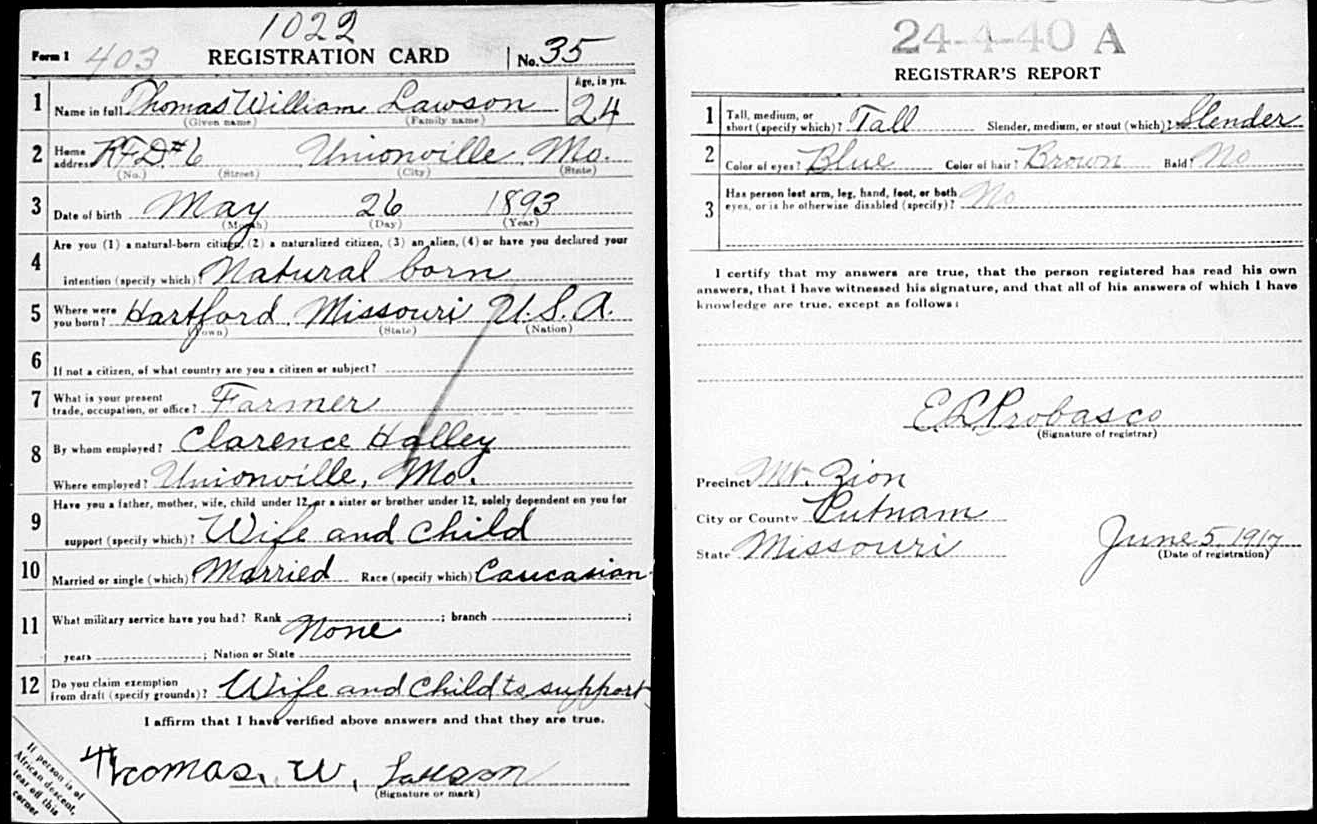 1022
403
Form 1 REGISTRATION CARD No. 35
1 Name in full Thomas William Lawson Age, in yrs. 24
(Given name) (Family name)
2 Home address RFD#6 Unionville Mo.
(No.) (Street) (City) (State)
3 Date of birth May 26 1893
(Month) (Day) (Year)
4 Are you (1) a natural-born citizen, (2) a naturalized citizen, (3) an alien, (4) or have you declared your
intention (specify which)? Natural born
5 Where were you born? Hartford Missouri U.S.A.
(Town) (State) (Nation)
6 If not a citizen, of what country are you a citizen or subject?
7 What is your present trade, occupation, or office? Farmer
8 By whom employed? Clarence Halley
Where employed? Unionville, Mo.
9 Have you a father, mother, wife, child under 12, or a sister or brother under 12, solely dependent on you for
support (specify which)? Wife and child
10 Married or single (which)? Married Race (specify which)? Caucasian
11 What military service have you had? Rank None ; branch ;
years ; Nation or State
12 Do you claim exemption from draft (specify grounds)? Wife and child to support
I affirm that I have verified above answers and that they are true.
Thomas. W, Lawson
(Signature or mark)
If person is of
African descent,
tear off this
corner
24-4-40 A
REGISTRAR'S REPORT
1 Tall, medium, or short (specify which)? Tall Slender, medium, or stout (which)? Slender
2 Color of eyes? Blue Color of hair? Brown Bald? No
3 Has person lost arm, leg, hand, foot, or both eyes, or is he otherwise disabled (specify)? No
I certify that my answers are true, that the person registered has read his own
answers, that I have witnessed his signature, and that all of his answers of which I have
knowledge are true, except as follows:
E L Probasco
(Signature of registrar)
Precinct Mt. Zion
City or County Putnam
State Missouri
June 5 1917
(Date of registration)